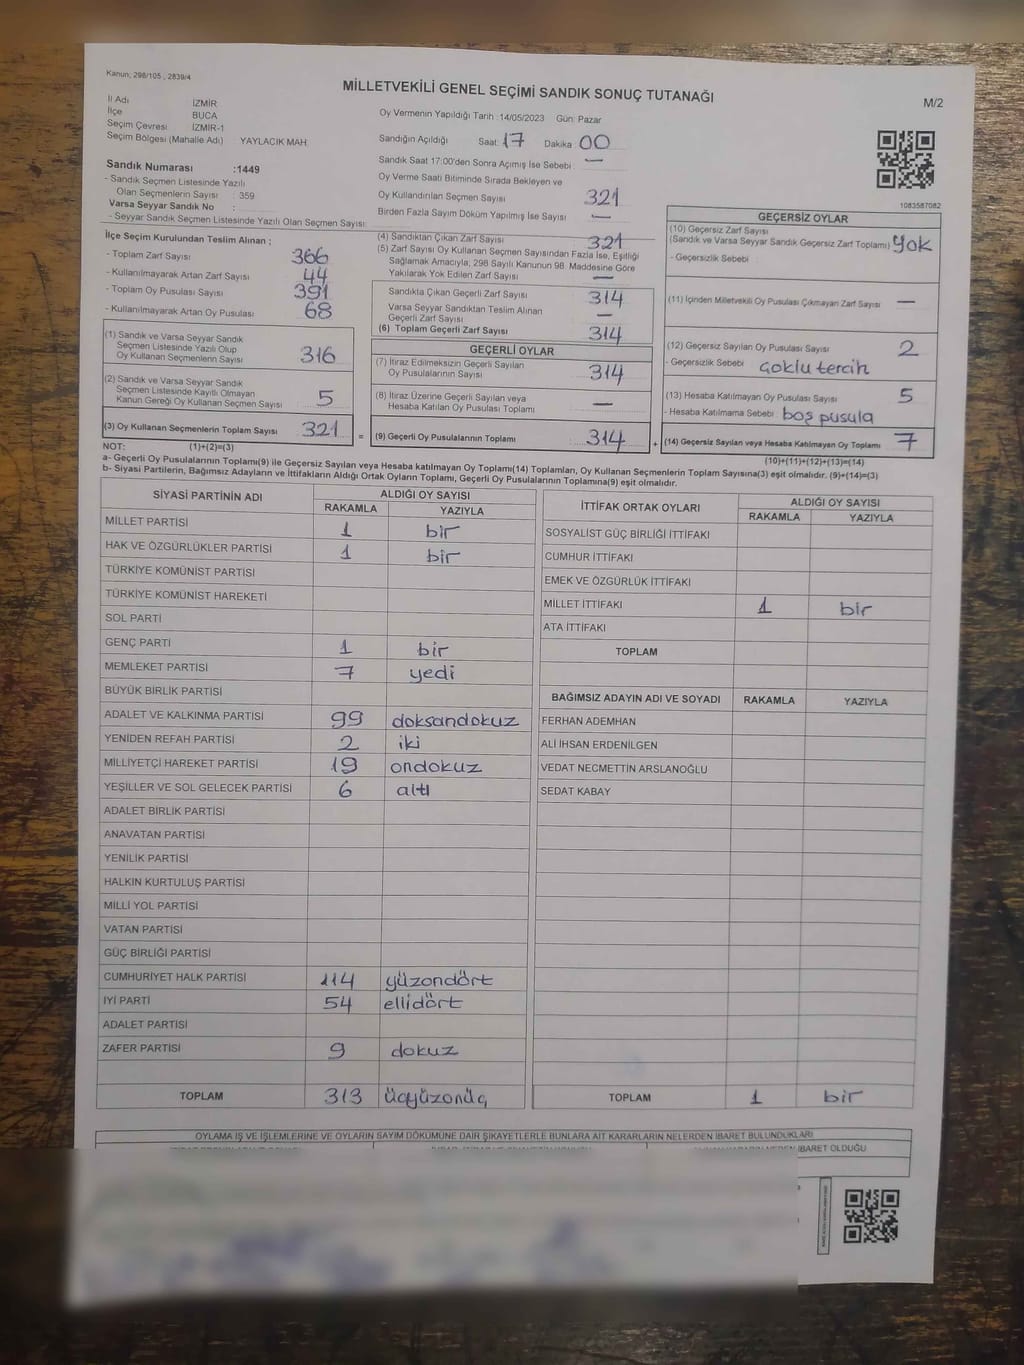 Kanun; 298/105 , 2839/4
MİLLETVEKİLİ GENEL SEÇİMİ SANDIK SONUÇ TUTANAĞI
M/2
İl Adı İZMİR
İlçe BUCA
Seçim Çevresi İZMİR-1
Seçim Bölgesi (Mahalle Adı) YAYLACIK MAH.
Sandık Numarası :1449
- Sandık Seçmen Listesinde Yazılı
Olan Seçmenlerin Sayısı : 359
Varsa Seyyar Sandık No :
- Seyyar Sandık Seçmen Listesinde Yazılı Olan Seçmen Sayısı:
İlçe Seçim Kurulundan Teslim Alınan ;
- Toplam Zarf Sayısı 366
- Kullanılmayarak Artan Zarf Sayısı 44
- Toplam Oy Pusulası Sayısı 391
- Kullanılmayarak Artan Oy Pusulası 68
(1) Sandık ve Varsa Seyyar Sandık
Seçmen Listesinde Yazılı Olup
Oy Kullanan Seçmenlerin Sayısı 316
(2) Sandık ve Varsa Seyyar Sandık
Seçmen Listesinde Kayıtlı Olmayan
Kanun Gereği Oy Kullanan Seçmen Sayısı 5
(3) Oy Kullanan Seçmenlerin Toplam Sayısı 321
Oy Vermenin Yapıldığı Tarih :14/05/2023 Gün: Pazar
Sandığın Açıldığı Saat: 17 Dakika 00
Sandık Saat 17:00'den Sonra Açımış İse Sebebi : —
Oy Verme Saati Bitiminde Sırada Bekleyen ve
Oy Kullandırılan Seçmen Sayısı 321
Birden Fazla Sayım Döküm Yapılmış İse Sayısı —
(4) Sandıktan Çıkan Zarf Sayısı 321
(5) Zarf Sayısı Oy Kullanan Seçmen Sayısından Fazla İse, Eşitliği
Sağlamak Amacıyla; 298 Sayılı Kanunun 98. Maddesine Göre
Yakılarak Yok Edilen Zarf Sayısı —
Sandıkta Çıkan Geçerli Zarf Sayısı 314
Varsa Seyyar Sandıktan Teslim Alınan
Geçerli Zarf Sayısı —
(6) Toplam Geçerli Zarf Sayısı 314
GEÇERLİ OYLAR
(7) İtiraz Edilmeksizin Geçerli Sayılan
Oy Pusulalarının Sayısı 314
(8) İtiraz Üzerine Geçerli Sayılan veya
Hesaba Katılan Oy Pusulası Toplamı —
= (9) Geçerli Oy Pusulalarının Toplamı 314 +
1083587082
GEÇERSİZ OYLAR
(10) Geçersiz Zarf Sayısı
(Sandık ve Varsa Seyyar Sandık Geçersiz Zarf Toplamı) yok
- Geçersizlik Sebebi :
(11) İçinden Milletvekili Oy Pusulası Çıkmayan Zarf Sayısı —
(12) Geçersiz Sayılan Oy Pusulası Sayısı 2
- Geçersizlik Sebebi : çoklu tercih
(13) Hesaba Katılmayan Oy Sayısı 5
- Hesaba Katılmama Sebebi : boş pusula
(14) Geçersiz Sayılan veya Hesaba Katılmayan Oy Toplamı 7
NOT: (1)+(2)=(3)
(10)+(11)+(12)+(13)=(14)
a- Geçerli Oy Pusulalarının Toplamı(9) ile Geçersiz Sayılan veya Hesaba katılmayan Oy Toplamı(14) Toplamları, Oy Kullanan Seçmenlerin Toplam Sayısına(3) eşit olmalıdır. (9)+(14)=(3)
b- Siyasi Partilerin, Bağımsız Adayların ve İttifakların Aldığı Ortak Oyların Toplamı, Geçerli Oy Pusulalarının Toplamına(9) eşit olmalıdır.
SİYASİ PARTİNİN ADI ALDIĞI OY SAYISI
RAKAMLA YAZIYLA
MİLLET PARTİSİ 1 bir
HAK VE ÖZGÜRLÜKLER PARTİSİ 1 bir
TÜRKİYE KOMÜNİST PARTİSİ
TÜRKİYE KOMÜNİST HAREKETİ
SOL PARTİ
GENÇ PARTİ 1 bir
MEMLEKET PARTİSİ 7 yedi
BÜYÜK BİRLİK PARTİSİ
ADALET VE KALKINMA PARTİSİ 99 doksandokuz
YENİDEN REFAH PARTİSİ 2 iki
MİLLİYETÇİ HAREKET PARTİSİ 19 ondokuz
YEŞİLLER VE SOL GELECEK PARTİSİ 6 altı
ADALET BİRLİK PARTİSİ
ANAVATAN PARTİSİ
YENİLİK PARTİSİ
HALKIN KURTULUŞ PARTİSİ
MİLLİ YOL PARTİSİ
VATAN PARTİSİ
GÜÇ BİRLİĞİ PARTİSİ
CUMHURİYET HALK PARTİSİ 114 yüzondört
İYİ PARTİ 54 ellidört
ADALET PARTİSİ
ZAFER PARTİSİ 9 dokuz
TOPLAM 313 üçyüzonüç
İTTİFAK ORTAK OYLARI ALDIĞI OY SAYISI
RAKAMLA YAZIYLA
SOSYALİST GÜÇ BİRLİĞİ İTTİFAKI
CUMHUR İTTİFAKI
EMEK VE ÖZGÜRLÜK İTTİFAKI
MİLLET İTTİFAKI 1 bir
ATA İTTİFAKI
TOPLAM
BAĞIMSIZ ADAYIN ADI VE SOYADI RAKAMLA YAZIYLA
FERHAN ADEMHAN
ALİ İHSAN ERDENİLGEN
VEDAT NECMETTİN ARSLANOĞLU
SEDAT KABAY
TOPLAM 1 bir
OYLAMA İŞ VE İŞLEMLERİNE VE OYLARIN SAYIM DÖKÜMÜNE DAİR ŞİKAYETLERLE BUNLARA AİT KARARLARIN NELERDEN İBARET BULUNDUKLARI
İBARET OLDUĞU